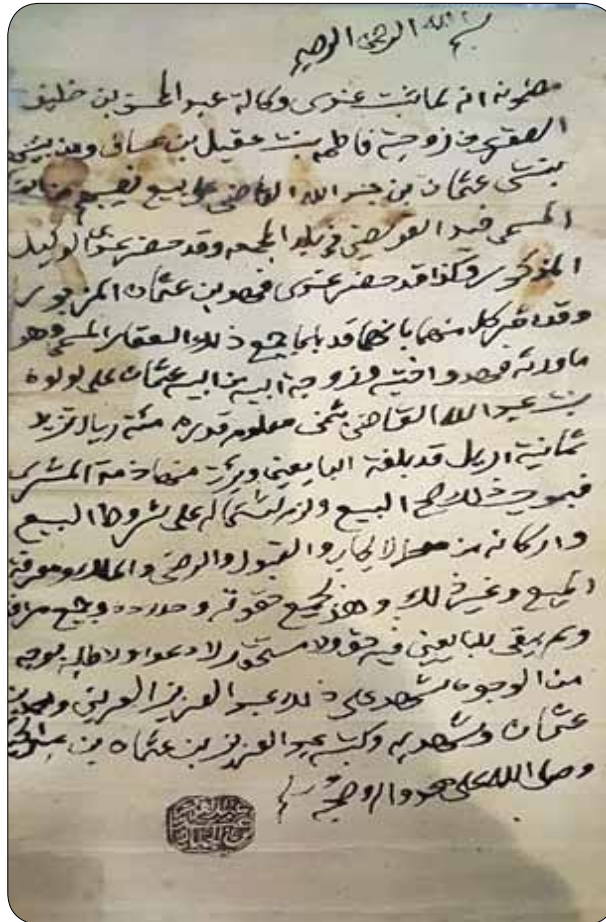 بسم الله الرحمن الرحيم
مضمونه انه لما ثبت عندي وكالة عبد المحسن بن خليف
عن زوجته فاطمه بنت عقيل بن عساف وعن
بنتي عثمان بن عبد الله القاضي على بيع نصيبهم من
المسمى فيد العوضي في بلد المجمعه وقد حضر عندي الوكيل
المذكور وكذا قد حضر عندي محمد بن عثمان المزبور
وقد اقر كل منهما بانهما قد باعا جميع ذلك العقار المسمى وهو
ما ورثه محمد واختيه وزوجة ابيه من ابيه عثمان على لولوه
بنت عبد الله القاضي بثمن معلوم قدره مئة ريال تزيد
ثمانية اريل قد بلغة البايعين وبرئت منها ذمة المشتري
فبموجب ذلك صح البيع ولزم لاشتماله على شروط البيع
واركانه من الايجاب والقبول والرضى و ومعرفة
المبيع وغير ذلك و بجميع حقوقه وحدوده وجميع
ولم يبقى للبايعين فيه حق ولا مستحق لا دعوا ولا طلبه بوجه
من الوجوه شهد على ذلك عبد العزيز العريني
عثمان وشهد به وكتبه عبد العزيز بن عثمان بن
وصلى الله على محمد واله وصحبه وسلم